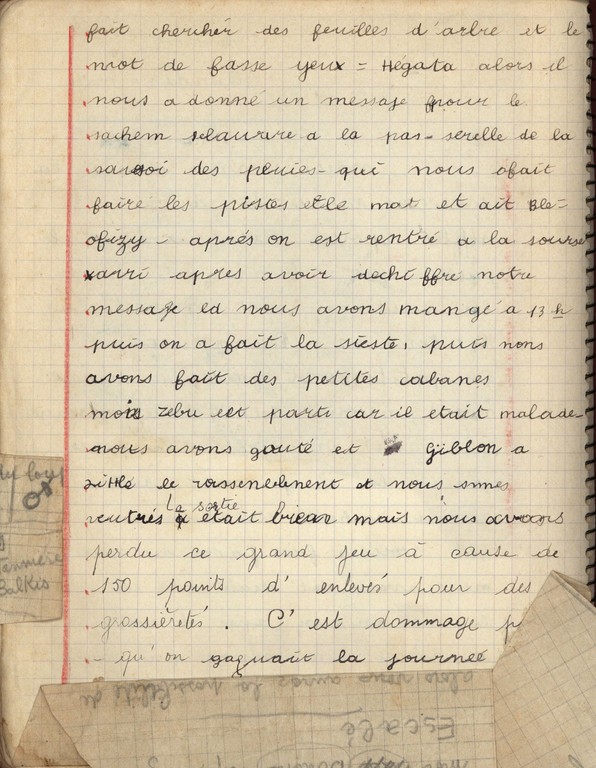 fait chercher des feuilles d'arbre et le
mot de fasse yeux = Hégata alors il
nous a donné un message pour le
sachem a la pas-serelle de la
des pluies - qui nous a fait
faire les pistes et le mat et ait Ble-
ofizy - aprés on est rentré a la sourse
xarri apres avoir dechiffré notre
message ed nous avons mangé a 13 h
puis on a fait la sieste, puis nous
avons fait des petites cabanes
mois zebu est parti car il etait malade
nous avons gouté et Giblon a
siflé le rassenblement et nous somes
La sortie
rentrés etait bien mais nous avons
perdu ce grand jeu à cause de
150 points d'enlevés pour des
grossièretés. C'est dommage p
- qu'on gagnait la journeé
alors vous aurez la possibilité de
Escale
y loup
Tanniere
Balkis